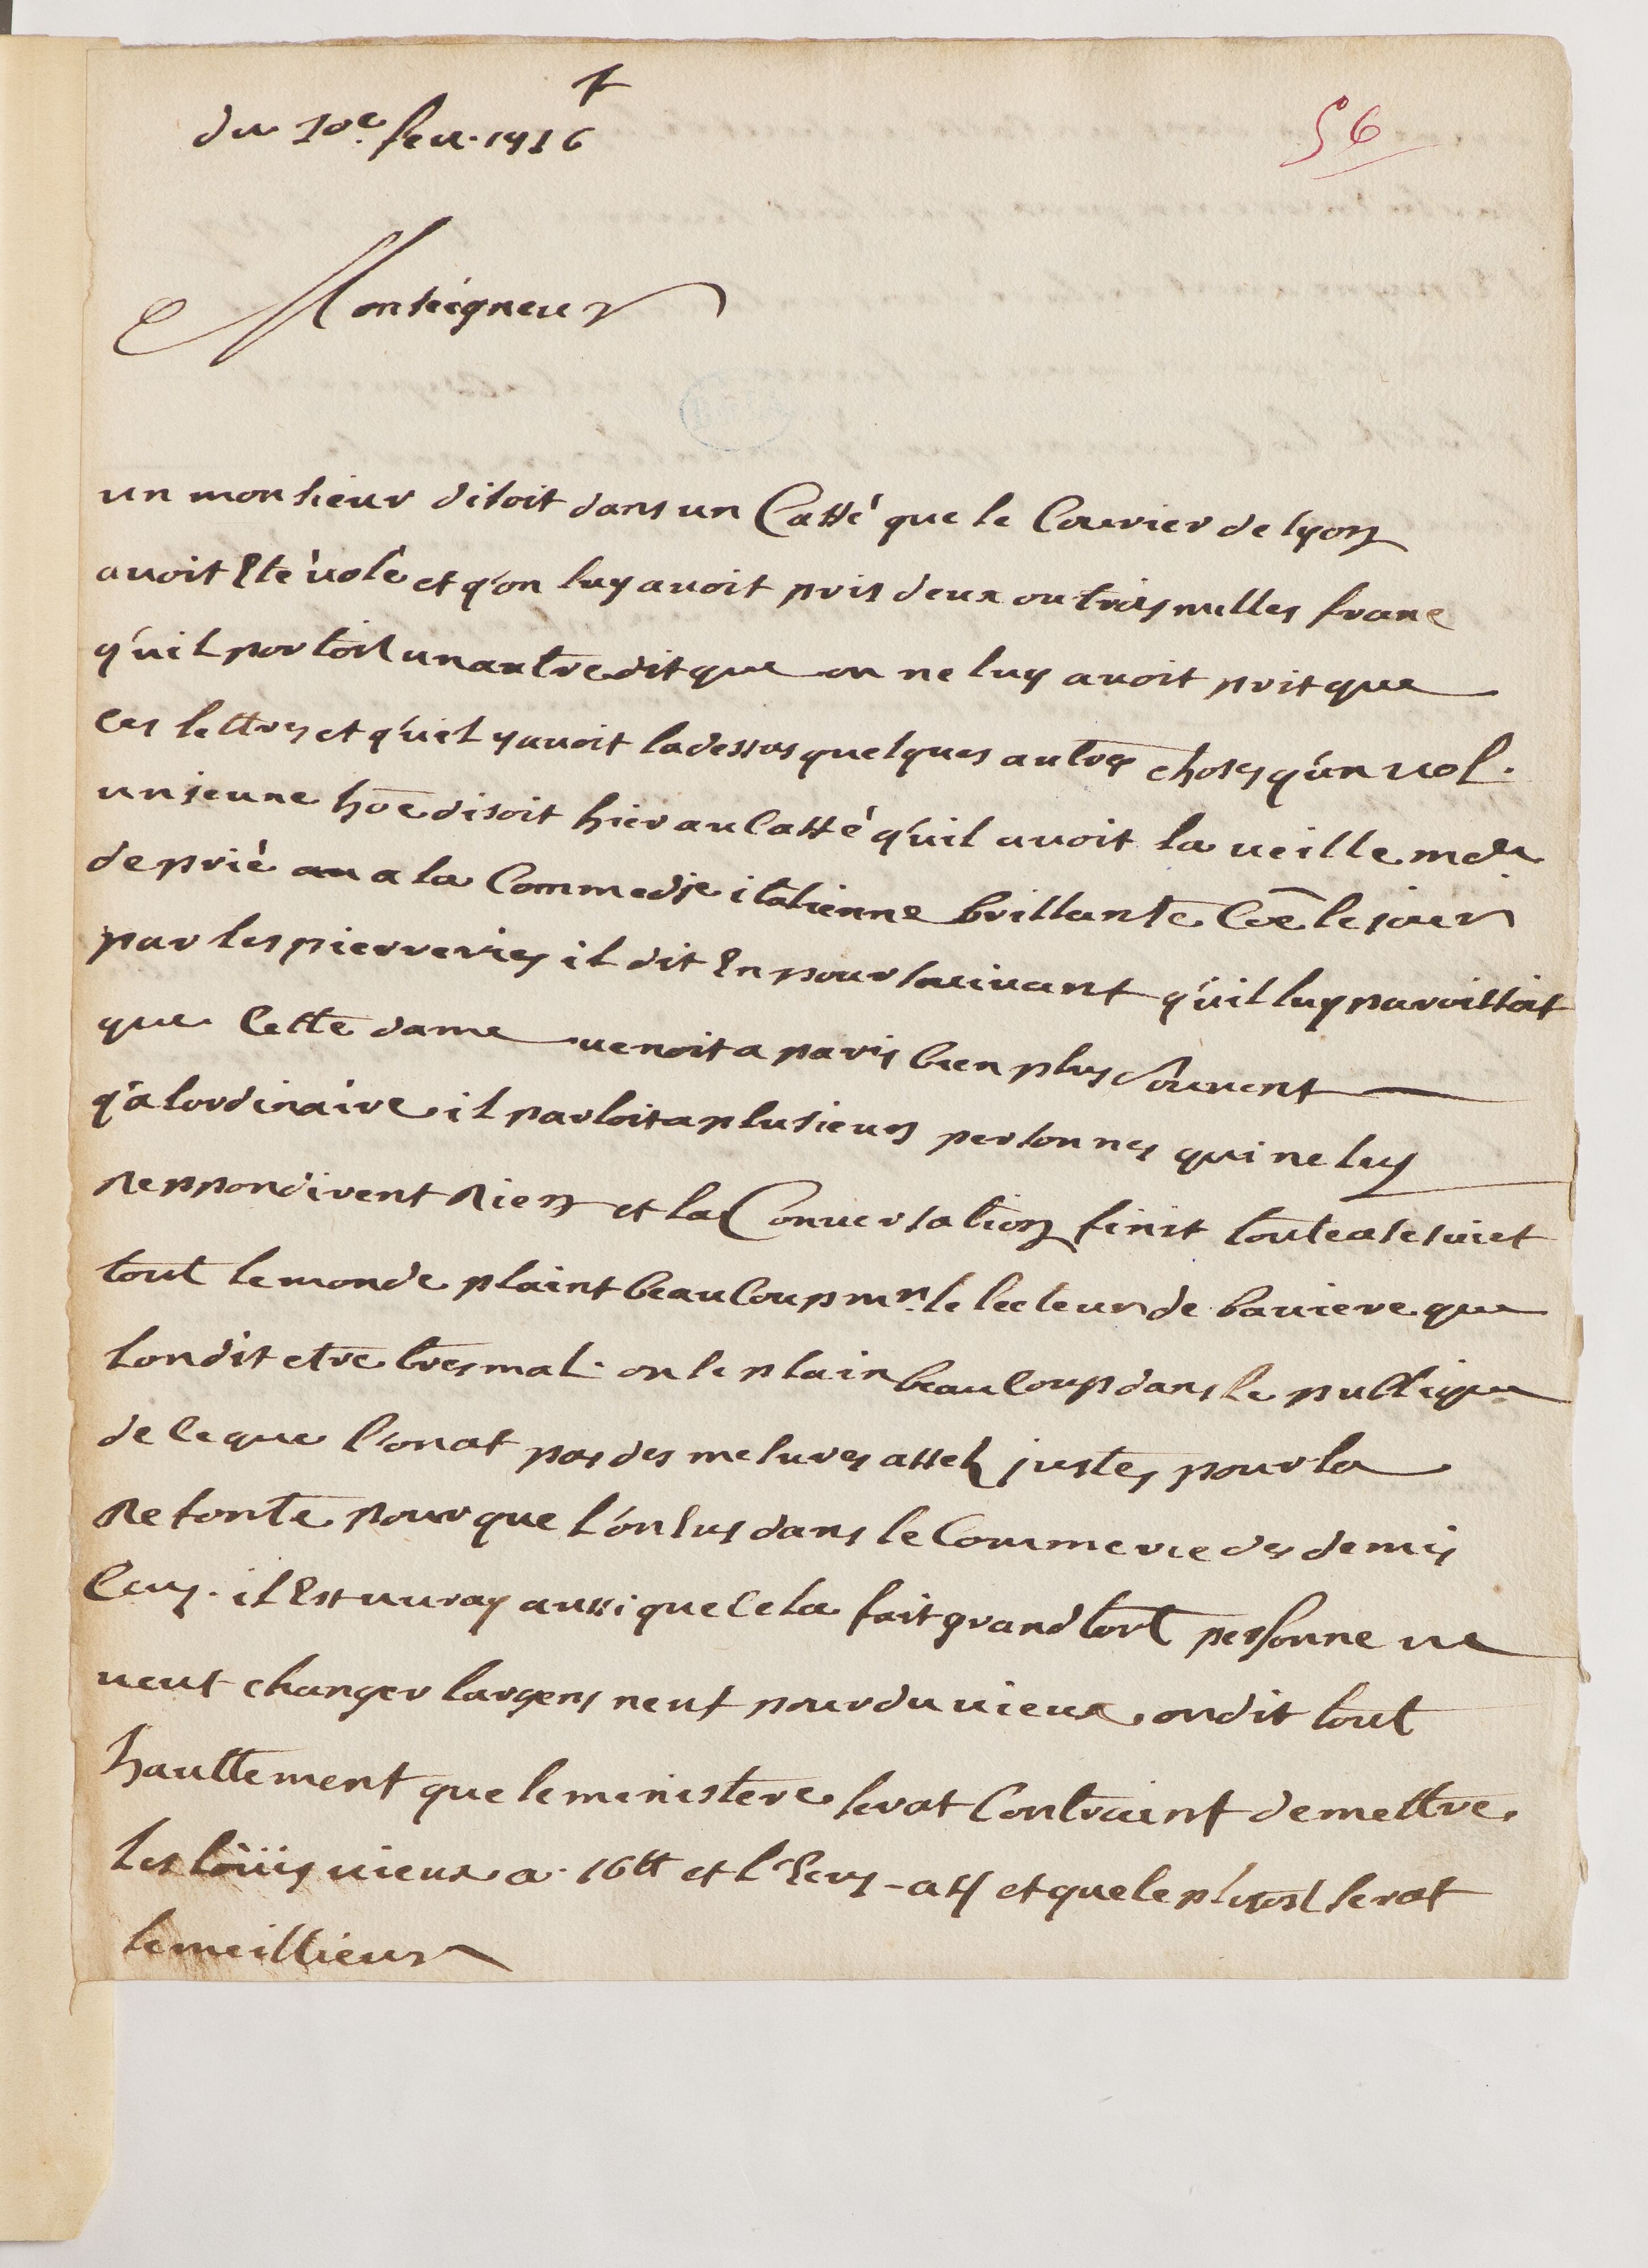 du 10e. feu. 1726
56
Monseigneur
un monsieur disoit dans un Caffé que le Courier de lyon
avoit Eté volé et q'on luy avoit pris deux ou trois milles franc
q'uil portoit un autre dit que on ne luy avoit prit que
ces lettres et q'uil y avoit la dessus quelques autres choses q'un vol.
un jeune hōe disoit hier au Caffé q'uil avoit la veille mde
de prié a la Commedie italienne brillante Cōe le jour
par les pierreries il dit En poursuivant q'uil luy paroissoit
que Cette dame venoit a paris bien plus souvent
q'a lordinaire il parloit a plusieurs personnes qui ne luy
Respondirent Rien et la Conversation finit toute a se sujet
tout le monde plaint beauCoup mr. le lecteur de baviere que
lon dit etre tres mal. on le plain beauCoup dans le publique
de Ce que l'on at pas des mesures assez justes pour la
Refonte pour que l'on eus dans le Commerce des demis
Ecus. il Est vray aussi que Cela fait grand tort personne ne
veut changer largens neuf pour du vieux on dit tout
hauttement que le ministere serat Contraint de mettre
les loüis vieux a 16tt et l'Ecus a 4 et que le plutost serat
le meillieur